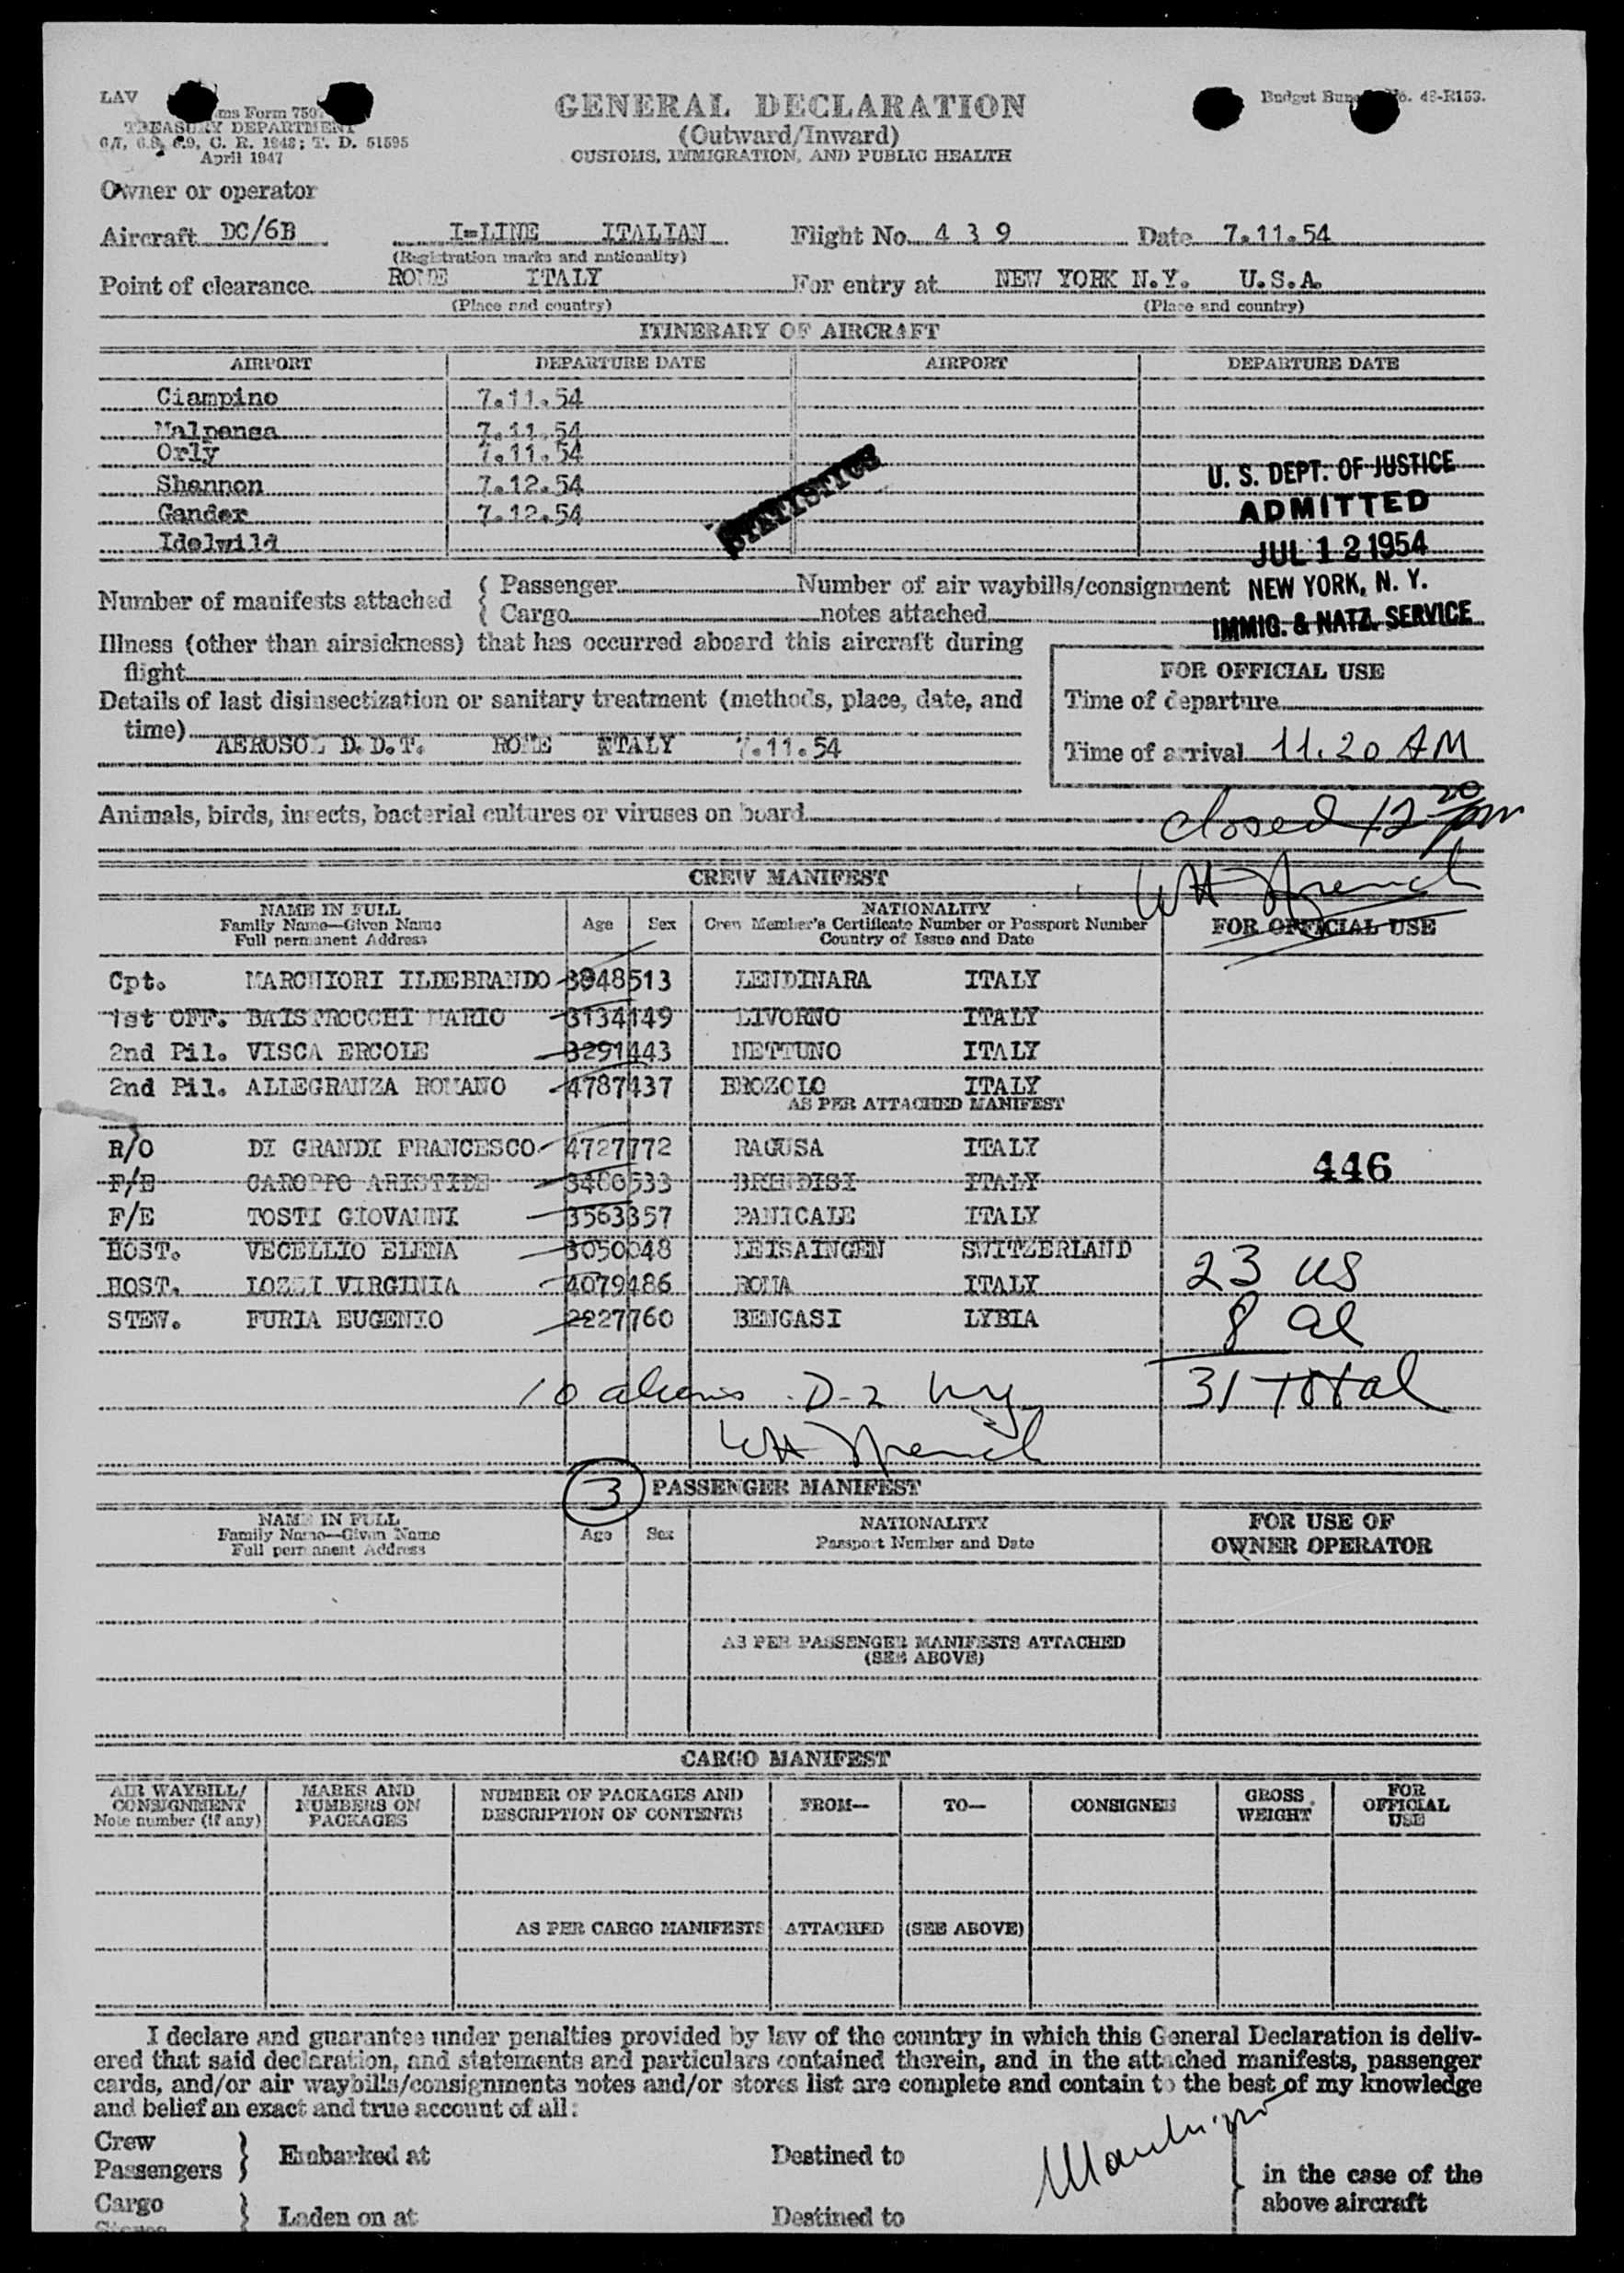 LAV
ms Form 7507
TREASURY DEPARTMENT
6.7, 6.8, 6.9, C. R. 1943; T. D. 51595
April 1947
GENERAL DECLARATION
(Outward/Inward)
CUSTOMS, IMMIGRATION, AND PUBLIC HEALTH
Budget Bureau No. 43-R153.
Owner or operator
Aircraft DC/6B I-LINE ITALIAN Flight No. 4 3 9 Date 7.11.54
(Registration marks and nationality)
Point of clearance ROME ITALY For entry at NEW YORK N.Y. U.S.A.
(Place and country) (Place and country)
ITINERARY OF AIRCRAFT
AIRPORT DEPARTURE DATE AIRPORT DEPARTURE DATE
Ciampino 7.11.54
Malpensa 7.11.54
Orly 7.11.54
Shannon 7.12.54
Gander 7.12.54
Idelwild
STATISTICS
U. S. DEPT. OF JUSTICE
ADMITTED
JUL 12 1954
NEW YORK, N. Y.
IMMIG. & NATZ. SERVICE
Number of manifests attached { Passenger Number of air waybills/consignment
{ Cargo notes attached
Illness (other than airsickness) that has occurred aboard this aircraft during
flight
Details of last disinsectization or sanitary treatment (methods, place, date, and
time) AEROSOL D.D.T. ROME ITALY 7.11.54
FOR OFFICIAL USE
Time of departure
Time of arrival 11.20 AM
Animals, birds, insects, bacterial cultures or viruses on board
closed 12 20 pm
CREW MANIFEST
NAME IN FULL
Family Name—Given Name
Full permanent Address
Age Sex
NATIONALITY
Crew Member's Certificate Number or Passport Number
Country of Issue and Date
FOR OFFICIAL USE
Cpt. MARCHIORI ILDEBRANDO 3848513 LENDINARA ITALY
1st OFF. BAISTROCCHI MARIO 3134149 LIVORNO ITALY
2nd Pil. VISCA ERCOLE 3291443 NETTUNO ITALY
2nd Pil. ALLEGRANZA ROMANO 4787437 BROZOLO ITALY
AS PER ATTACHED MANIFEST
R/O DI GRANDI FRANCESCO 4727772 RAGUSA ITALY
F/E CAROPPO ARISTIDE 3480533 BRINDISI ITALY
F/E TOSTI GIOVANNI 3563357 PANICALE ITALY
HOST. VECELLIO ELENA 3050048 LEISAINGEN SWITZERLAND
HOST. LOZZI VIRGINIA 4079486 ROMA ITALY
STEW. FURIA EUGENIO 2227760 BENGASI LYBIA
446
23 US
8 al
31 Total
10 aliens D-2 N.Y.
3
PASSENGER MANIFEST
NAME IN FULL
Family Name—Given Name
Full permanent Address
Age Sex
NATIONALITY
Passport Number and Date
FOR USE OF
OWNER OPERATOR
AS PER PASSENGER MANIFESTS ATTACHED
(SEE ABOVE)
CARGO MANIFEST
AIR WAYBILL/
CONSIGNMENT
Note number (if any)
MARKS AND
NUMBERS ON
PACKAGES
NUMBER OF PACKAGES AND
DESCRIPTION OF CONTENTS
FROM—
TO—
CONSIGNEE
GROSS
WEIGHT
FOR
OFFICIAL
USE
AS PER CARGO MANIFESTS ATTACHED (SEE ABOVE)
I declare and guarantee under penalties provided by law of the country in which this General Declaration is deliv-
ered that said declaration, and statements and particulars contained therein, and in the attached manifests, passenger
cards, and/or air waybills/consignments notes and/or stores list are complete and contain to the best of my knowledge
and belief an exact and true account of all:
Crew
Passengers } Embarked at Destined to
in the case of the
above aircraft
Cargo
Stores } Laden on at Destined to